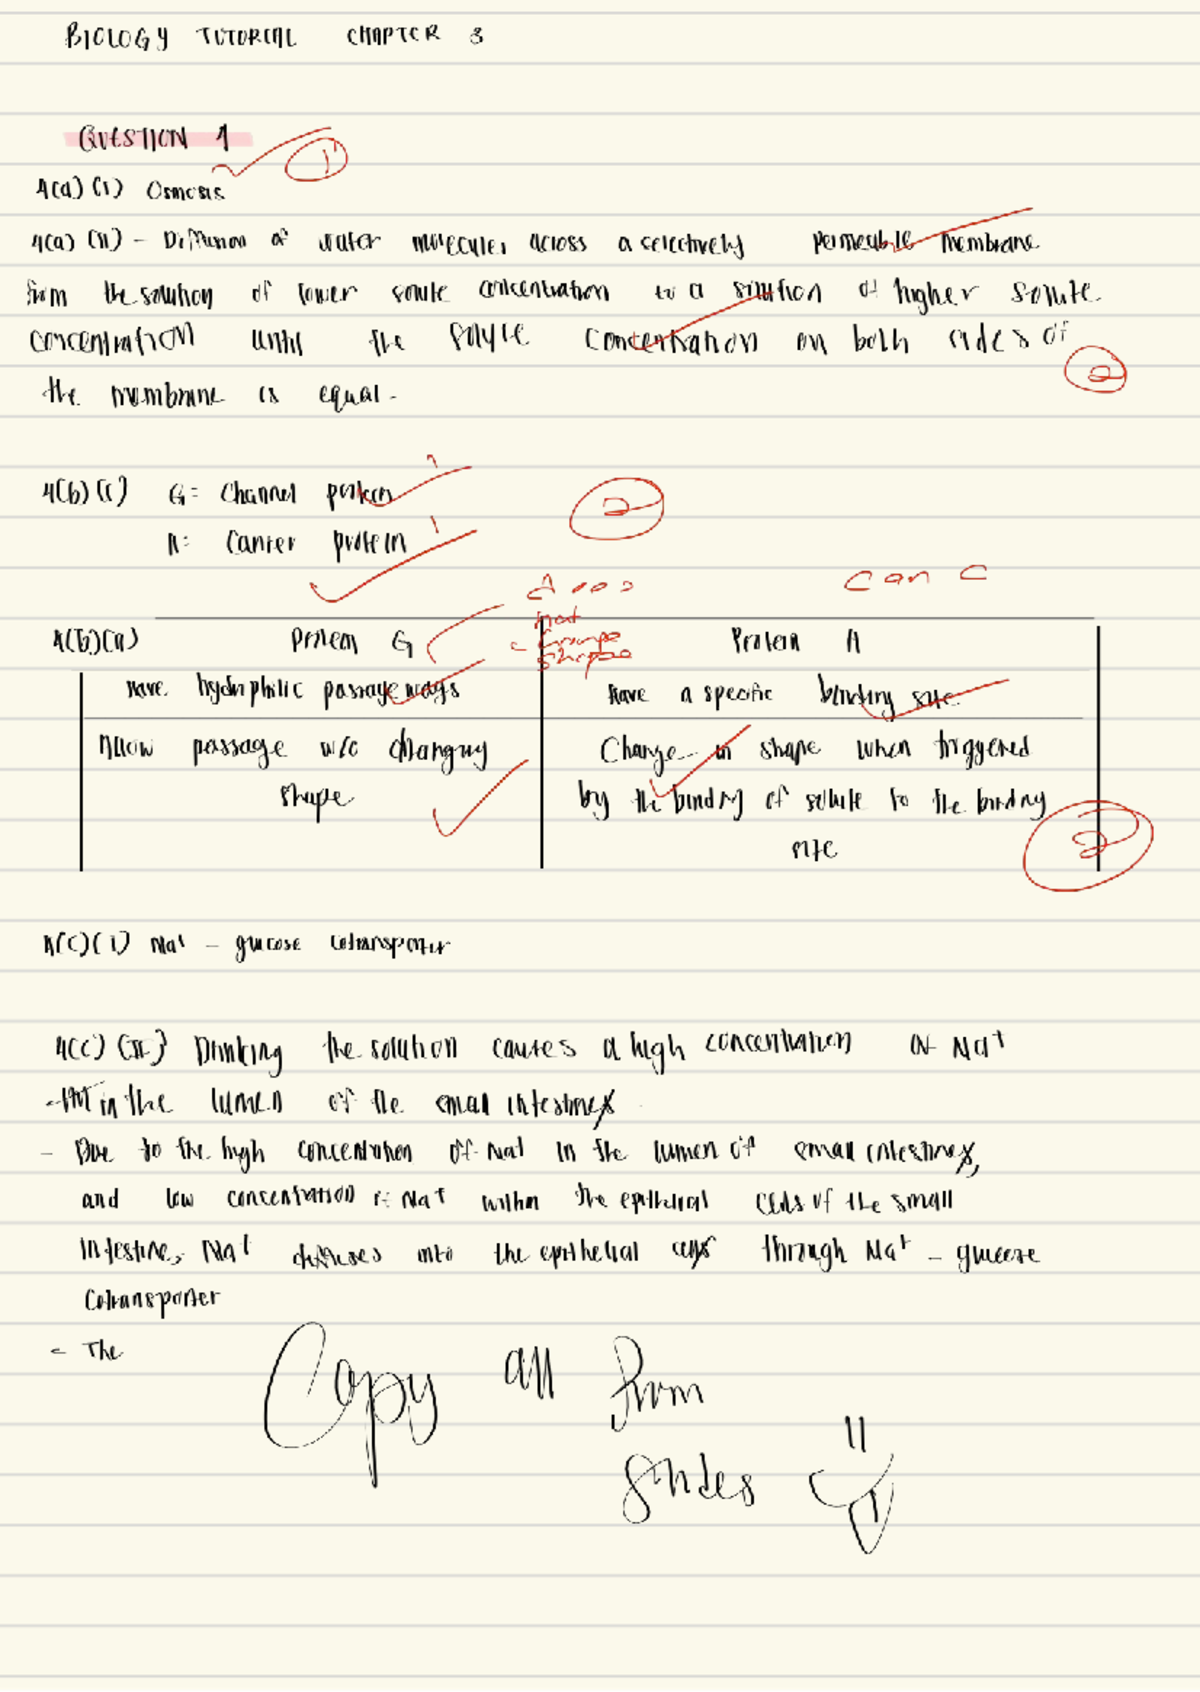 BIOLOGY TUTORIAL CHAPTER 3
QUESTION 1
1(a)(i) Osmosis
1
1(a)(ii) - Diffusion of water molecules across a selectively permeable membrane
from the solution of lower solute concentration to a solution of higher solute
concentration until the solute concentration on both sides of
the membrane is equal.
2
1(b)(i) G = Channel protein 1
A: Carrier protein 1
2
Does
not
change
shape
Can C
1(b)(ii) Protein G Protein A
Have hydrophilic passageways Have a specific binding site
Allow passage w/o changing Change in shape when triggered
shape by the binding of solute to the binding
site
2
1(c)(i) Na+ - glucose cotransporter
1(c)(ii) Drinking the solution causes a high concentration of Na+
in the lumen of the small intestine
- Due to the high concentration of Na+ in the lumen of small intestine,
and low concentration of Na+ within the epithelial cells of the small
intestine, Na+ diffuses into the epithelial cells through Na+ - glucose
cotransporter
- The
Copy all from
slides